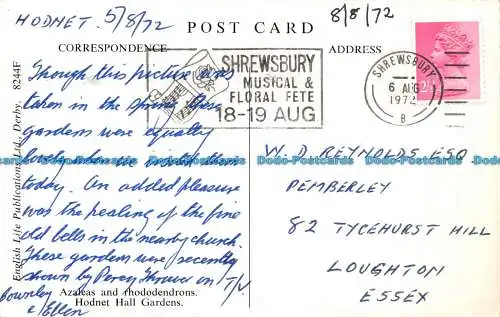 HODNET. 5/8/72
8/8/72
POST CARD
CORRESPONDENCE
ADDRESS
SHREWSBURY
MUSICAL &
FLORAL FETE
18-19 AUG
SHREWSBURY
6 AUG
1972
B
2½
Though this picture was
taken in the spring these
gardens were equally
lovely when we visited them
today. An added pleasure
was the pealing of the fine
old bells in the nearby church.
These gardens were recently
shown by Percy Thrower on T/V
& Ellen
W. D. REYNOLDS ESQ
PEMBERLEY
82 TYCEHURST HILL
LOUGHTON
ESSEX
Azaleas and rhododendrons.
Hodnet Hall Gardens.
English Life Publications Ltd., Derby.
8244F
Todo-Postcards.com